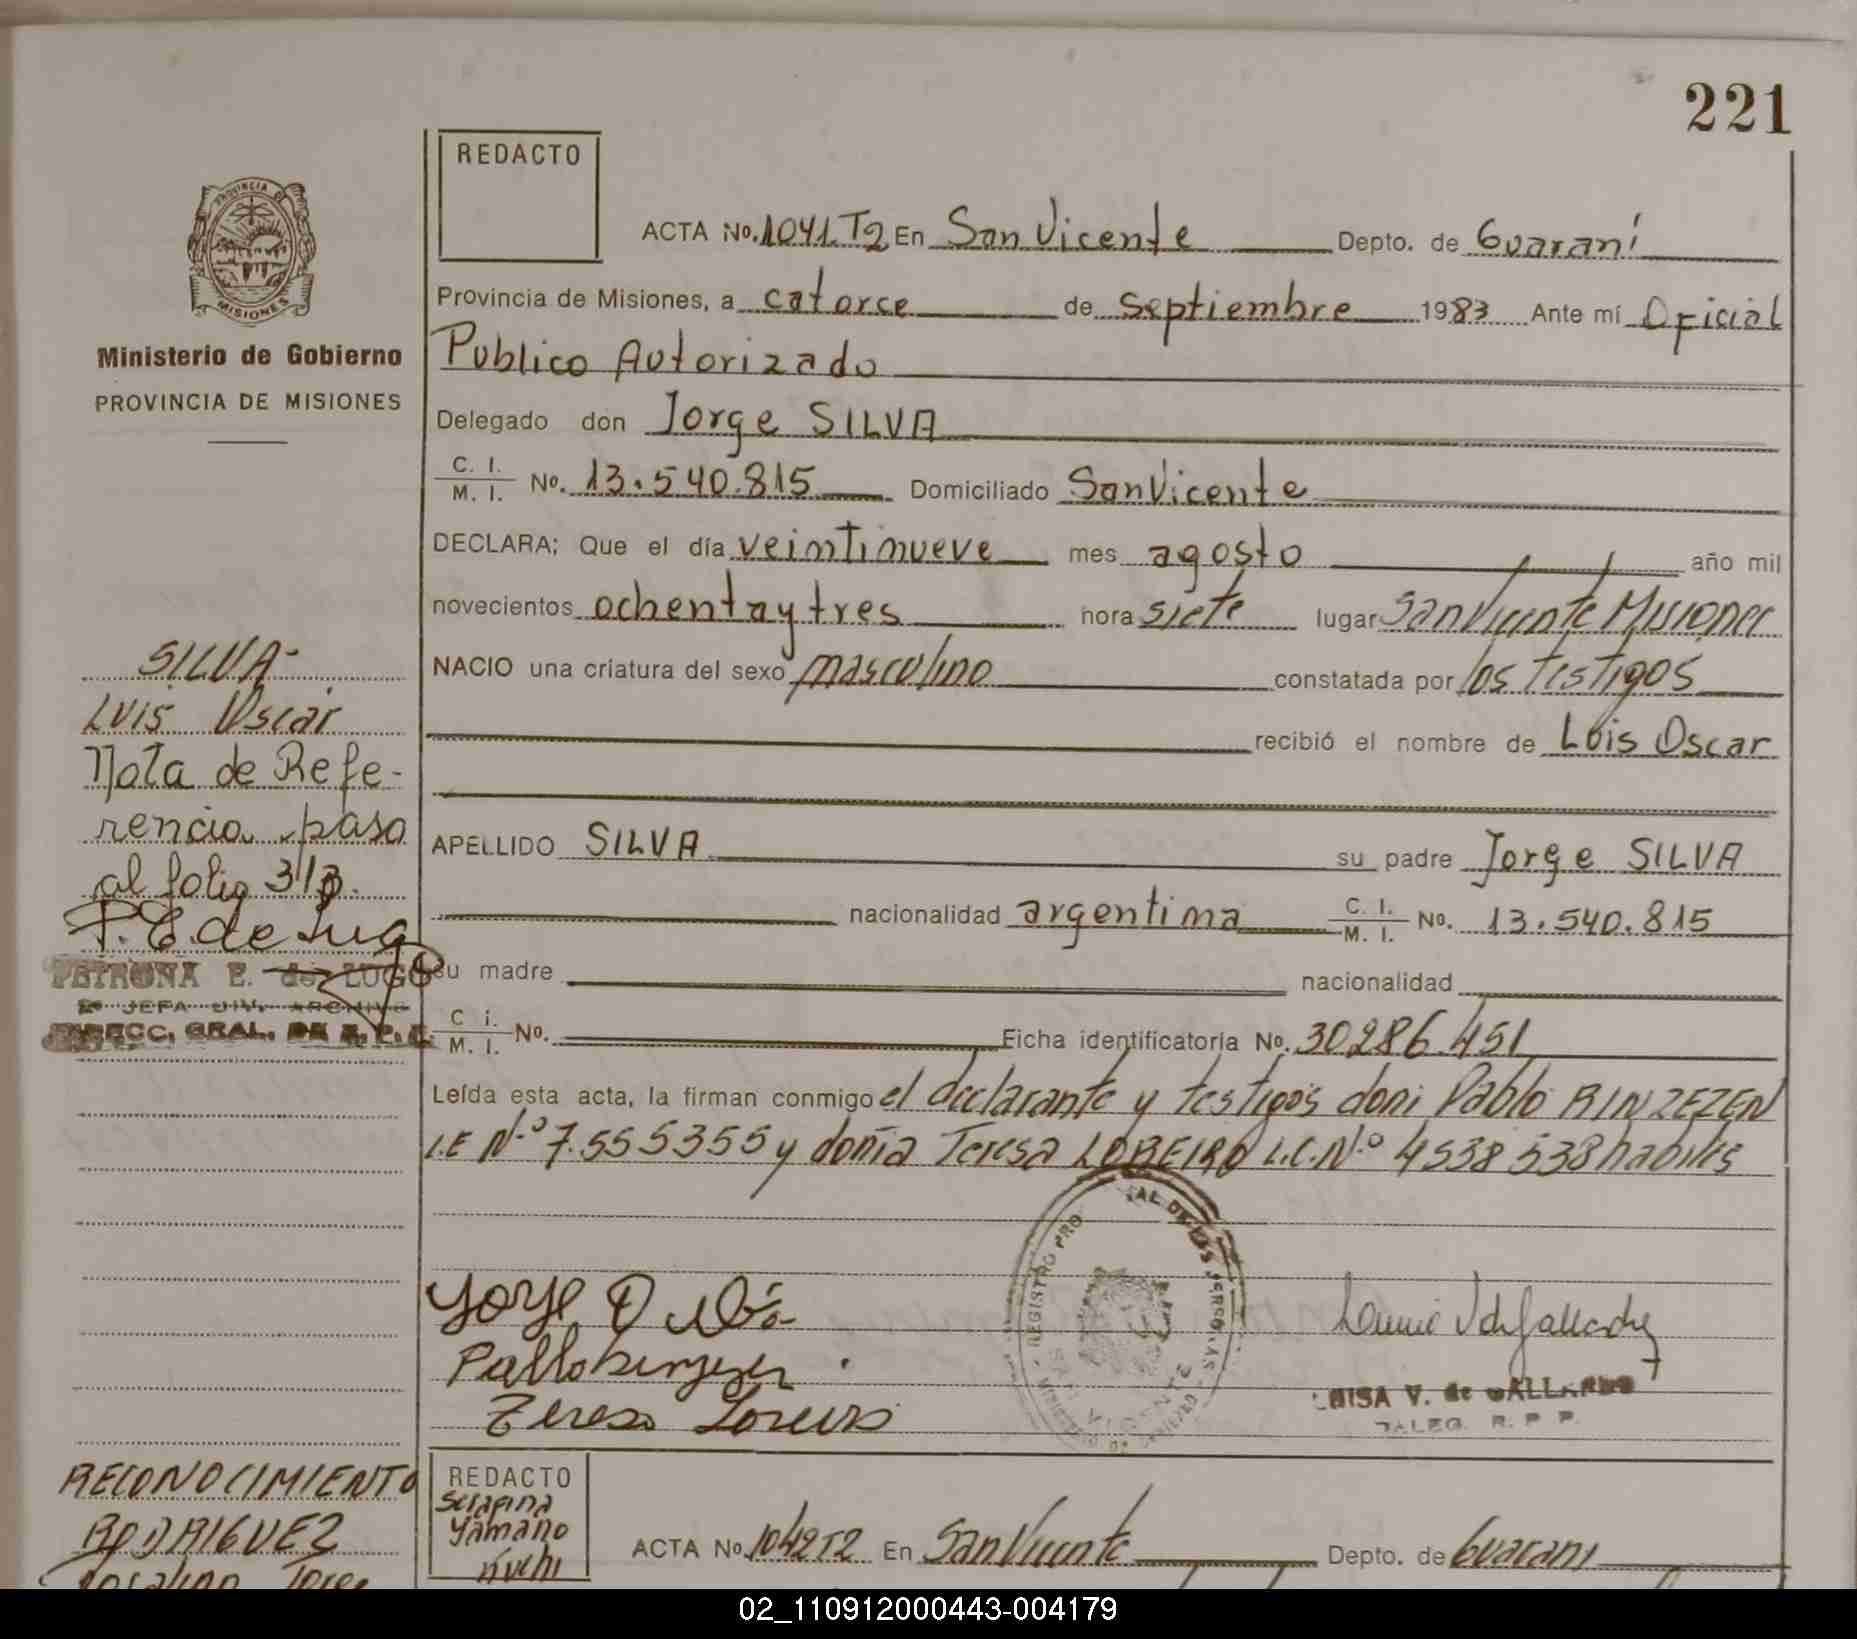 221
REDACTO
PROVINCIA DE
MISIONES
Ministerio de Gobierno
PROVINCIA DE MISIONES
ACTA No. 1041 T2 En San Vicente Depto. de Guaraní
Provincia de Misiones, a catorce de septiembre 1983 Ante mí Oficial
Publico Autorizado
Delegado don Jorge SILVA
C. I. / M. I. No. 13.540.815 Domiciliado San Vicente
DECLARA; Que el día veintinueve mes agosto año mil
novecientos ochenta y tres hora siete lugar San Vicente Misiones
NACIO una criatura del sexo masculino constatada por los testigos
recibió el nombre de Luis Oscar
APELLIDO SILVA su padre Jorge SILVA
nacionalidad argentina C. I. / M. I. No. 13.540.815
su madre nacionalidad
C. I. / M. I. No. Ficha identificatoria No. 30286.451
Leída esta acta, la firman conmigo el declarante y testigos don: Pablo BINZEZEN
L.E N.º 7.555355 y doña Teresa LOBEIRO L.C.N.º 4538538 habiles
SILVA-
Luis Oscar
Nota de Refe-
rencia paso
al folio 313.
P. E. de Lugo
PETRONA E. de LUGO
JEFA DIV. ARCHIVO
DIRECC. GRAL. DE R. P. P.
Jorge
Teresa
REGISTRO PRO AL DE LAS PERSONAS
SAN VICENTE
LUISA V. de GALLARDO
DALEG. R. P. P.
RECONOCIMIENTO
RODRIGUEZ
REDACTO
Serafina
Yamano
Kuchi
ACTA No. 1042 T2 En San Vicente Depto. de Guarani
02_110912000443-004179